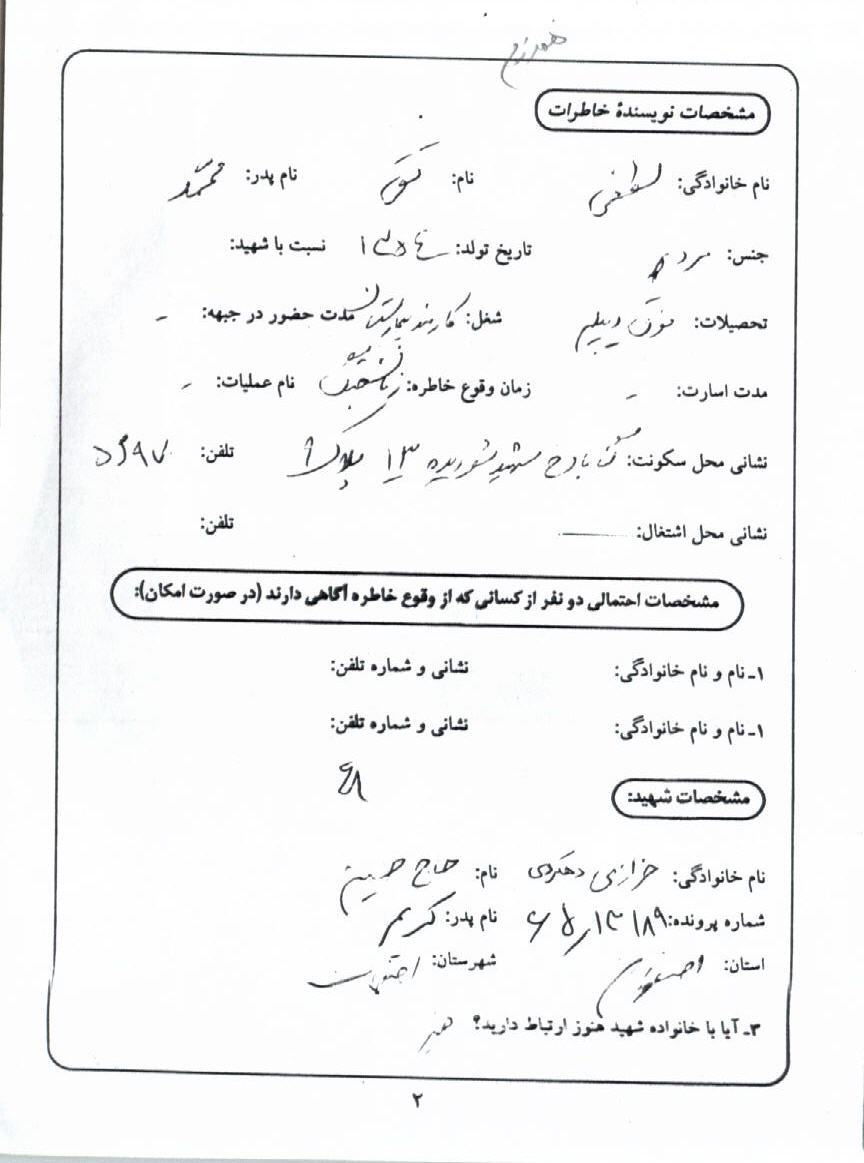 همرزم
مشخصات نویسندهٔ خاطرات
نام خانوادگی: لطفی نام: تقی نام پدر: محمّد
جنس: مرد تاریخ تولد: ۱۳۵۴ نسبت با شهید:
تحصیلات: فوق دیپلم شغل: کارمند بیمارستان مدت حضور در جبهه: -
مدت اسارت: - زمان وقوع خاطره: نام عملیات: -
نشانی محل سکونت: شهید شوریده ۱۳ پلاک ۹ تلفن: ۵۶۹۷
نشانی محل اشتغال: تلفن:
مشخصات احتمالی دو نفر از کسانی که از وقوع خاطره آگاهی دارند (در صورت امکان):
۱ـ نام و نام خانوادگی: نشانی و شماره تلفن:
۱ـ نام و نام خانوادگی: نشانی و شماره تلفن:
۴۸
مشخصات شهید:
نام خانوادگی: خرازی دهکردی نام: حاج حسین
شماره پرونده: نام پدر: کریم
استان: اصفهان شهرستان: اصفهان
۳ـ آیا با خانواده شهید هنوز ارتباط دارید؟ خیر
۲